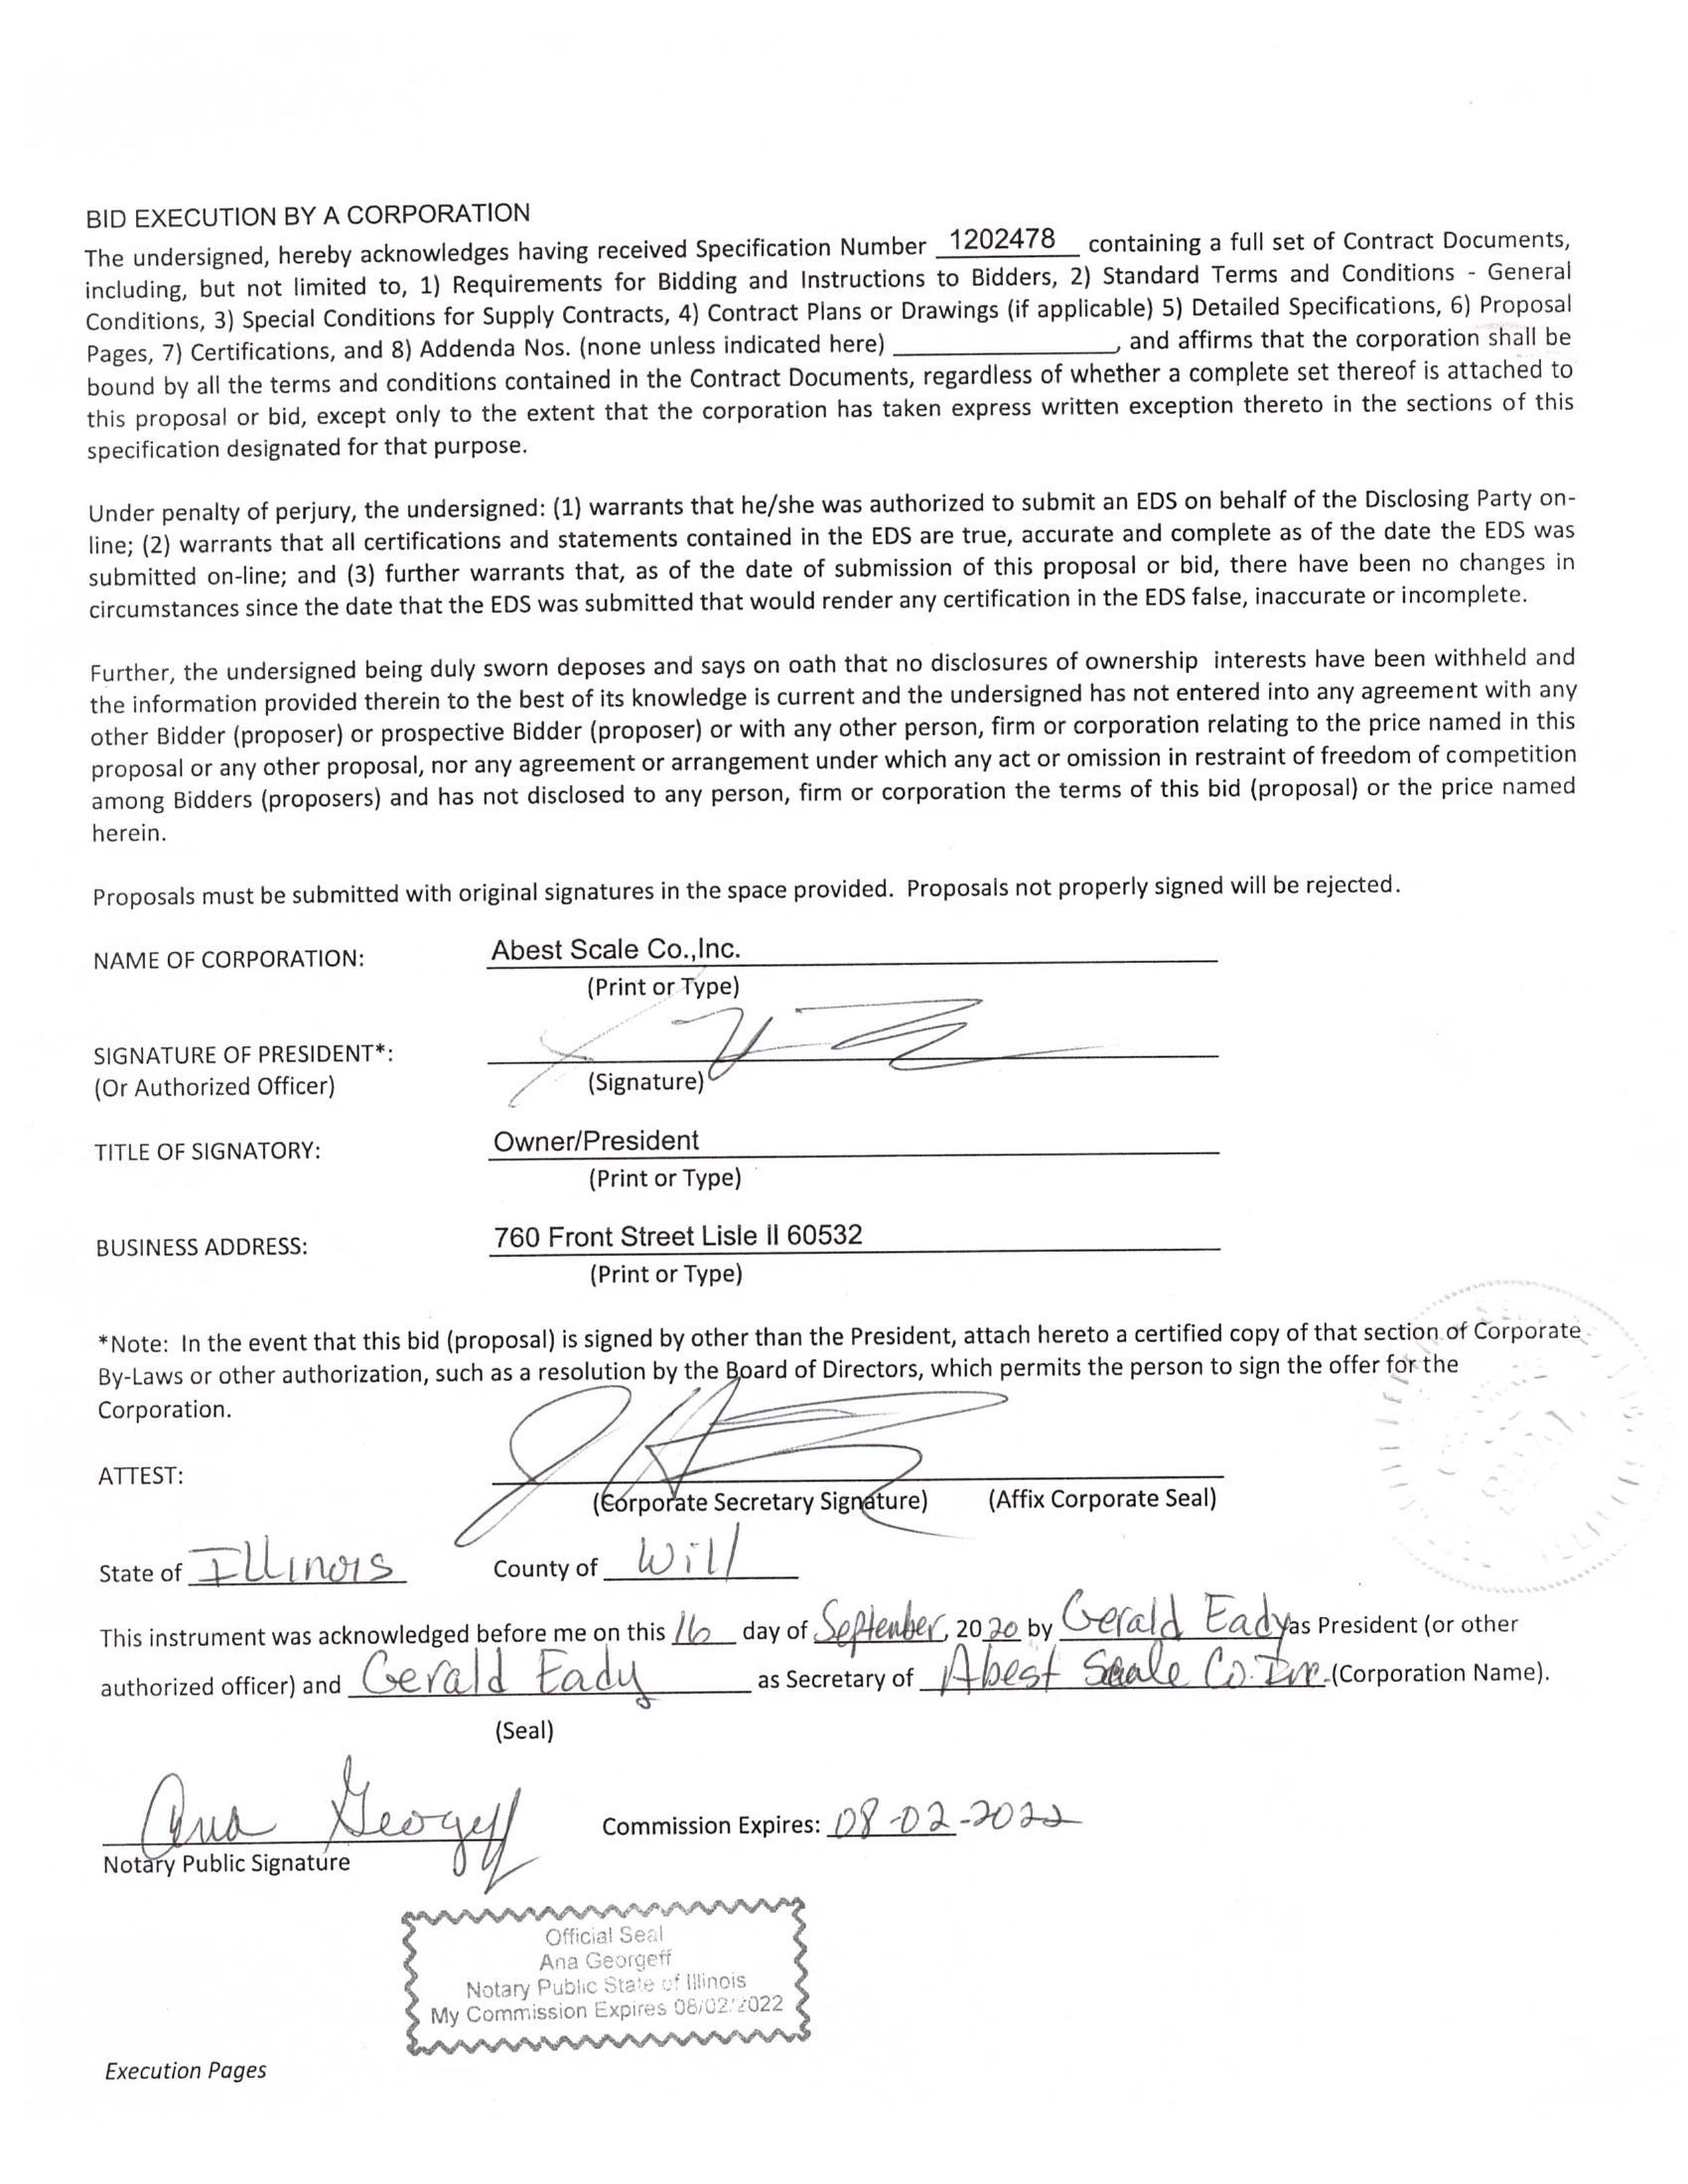 BID EXECUTION BY A CORPORATION
The undersigned, hereby acknowledges having received Specification Number 1202478 containing a full set of Contract Documents,
including, but not limited to, 1) Requirements for Bidding and Instructions to Bidders, 2) Standard Terms and Conditions - General
Conditions, 3) Special Conditions for Supply Contracts, 4) Contract Plans or Drawings (if applicable) 5) Detailed Specifications, 6) Proposal
Pages, 7) Certifications, and 8) Addenda Nos. (none unless indicated here) ________________, and affirms that the corporation shall be
bound by all the terms and conditions contained in the Contract Documents, regardless of whether a complete set thereof is attached to
this proposal or bid, except only to the extent that the corporation has taken express written exception thereto in the sections of this
specification designated for that purpose.
Under penalty of perjury, the undersigned: (1) warrants that he/she was authorized to submit an EDS on behalf of the Disclosing Party on-
line; (2) warrants that all certifications and statements contained in the EDS are true, accurate and complete as of the date the EDS was
submitted on-line; and (3) further warrants that, as of the date of submission of this proposal or bid, there have been no changes in
circumstances since the date that the EDS was submitted that would render any certification in the EDS false, inaccurate or incomplete.
Further, the undersigned being duly sworn deposes and says on oath that no disclosures of ownership interests have been withheld and
the information provided therein to the best of its knowledge is current and the undersigned has not entered into any agreement with any
other Bidder (proposer) or prospective Bidder (proposer) or with any other person, firm or corporation relating to the price named in this
proposal or any other proposal, nor any agreement or arrangement under which any act or omission in restraint of freedom of competition
among Bidders (proposers) and has not disclosed to any person, firm or corporation the terms of this bid (proposal) or the price named
herein.
Proposals must be submitted with original signatures in the space provided. Proposals not properly signed will be rejected.
NAME OF CORPORATION: Abest Scale Co.,Inc.
(Print or Type)
SIGNATURE OF PRESIDENT*:
(Or Authorized Officer) (Signature)
TITLE OF SIGNATORY: Owner/President
(Print or Type)
BUSINESS ADDRESS: 760 Front Street Lisle Il 60532
(Print or Type)
*Note: In the event that this bid (proposal) is signed by other than the President, attach hereto a certified copy of that section of Corporate
By-Laws or other authorization, such as a resolution by the Board of Directors, which permits the person to sign the offer for the
Corporation.
ATTEST:
(Corporate Secretary Signature) (Affix Corporate Seal)
State of Illinois County of Will
This instrument was acknowledged before me on this 16 day of September, 2020 by Gerald Eady as President (or other
authorized officer) and Gerald Eady as Secretary of Abest Scale Co. Inc. (Corporation Name).
(Seal)
Ana Georgeff Commission Expires: 08-02-2022
Notary Public Signature
Official Seal
Ana Georgeff
Notary Public State of Illinois
My Commission Expires 08/02/2022
Execution Pages